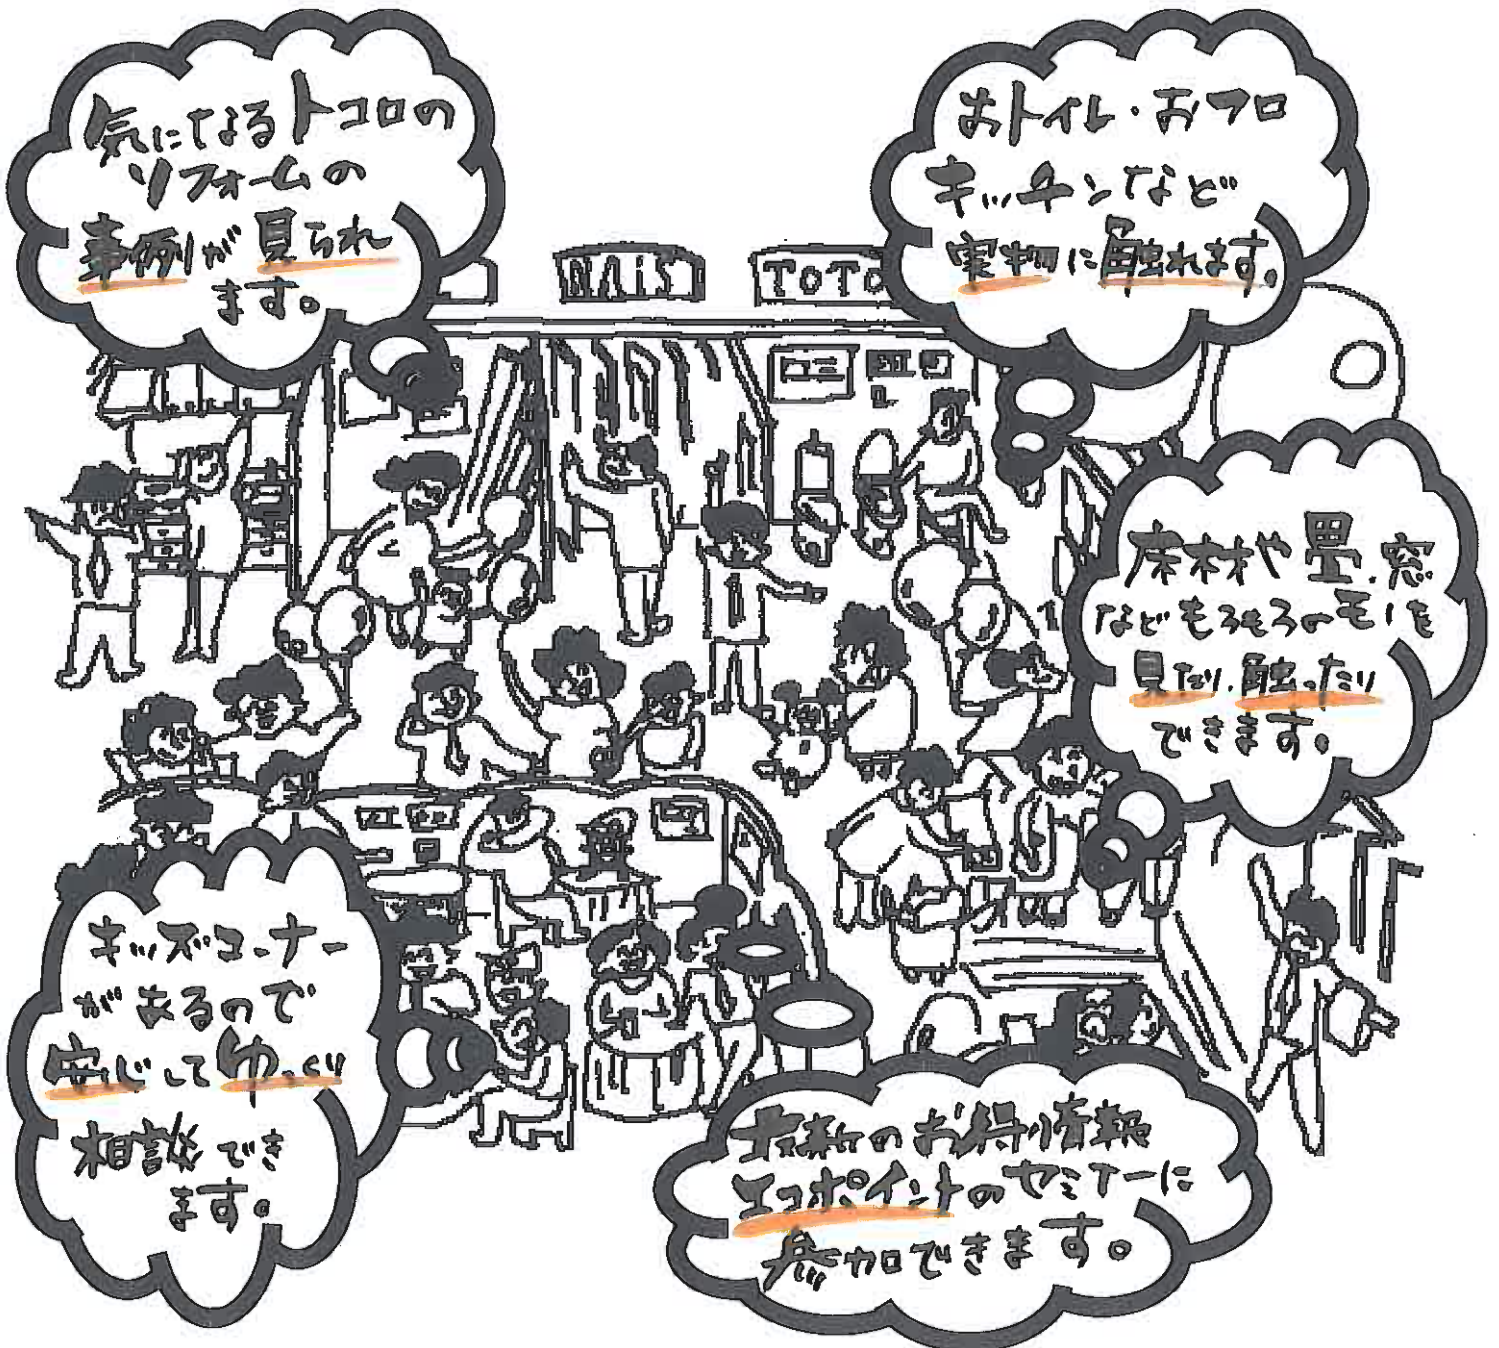 気になるトコロの
リフォームの
事例が見られ
ます。
おトイレ・おフロ
キッチンなど
実物に触れます。
NAiS
TOTO
床材や畳、窓
などもろもろのモノを
見たり、触ったり
できます。
キッズコーナー
があるので
安心して ゆっくり
相談でき
ます。
最新のお得情報
エコポイントのセミナーに
参加できます。